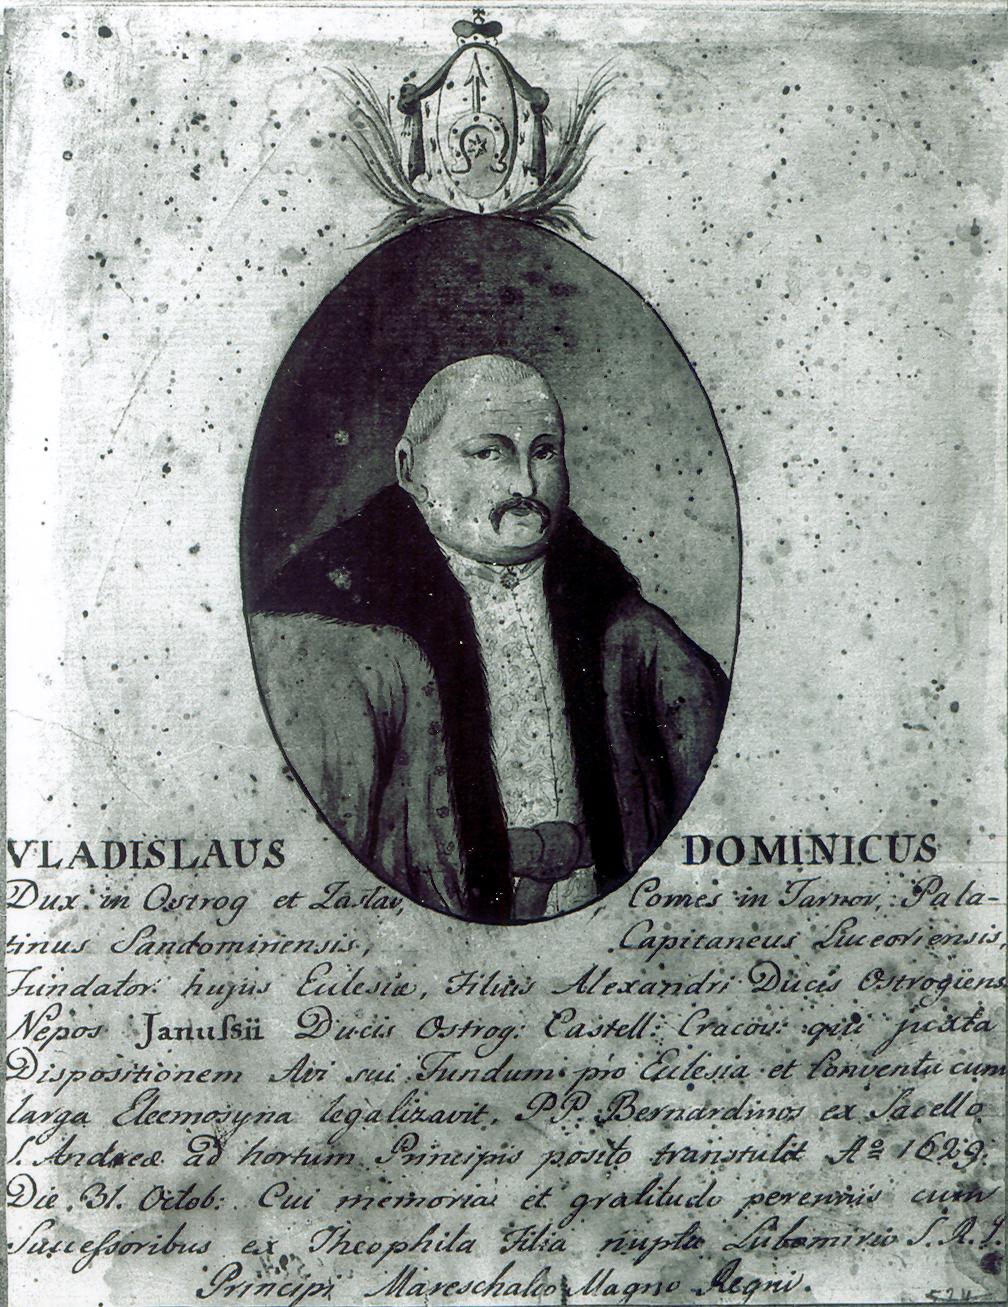 VLADISLAUS DOMINICUS
Dux in Ostrog et Zaslav, Comes in Tarnov, Pala-
tinus Sandomiriensis, Capitaneus Luceoriensis,
Fundator hujus Eclesiæ, Filius Alexandri Ducis Ostrogiens
Nepos Januſsii Ducis Ostrog: Castell: Cracov: qui juxta
Dispositionem Avi sui Fundum pro Eclesia et Conventu cum
larga Eleemosyna legalizavit, P.P. Bernardinos ex Sacello
S. Andreæ ad hortum Principis posito transtulit Aº 1629.
Die 31. Octob: Cui memoria et gratitudo perennis cum
Succeſsoribus ex Theophila Filia nupta Lubomirio S. R. I.
Principi Mareschalco Magno Regni.